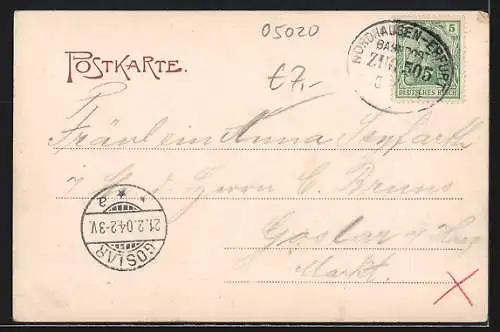 05020
€7,-
POSTKARTE.
NORDHAUSEN-ERFURT
BAHNPOST
ZUG 505
5
DEUTSCHES REICH
Fräulein Anna Seyfarth
d. Herrn C. Bruns
Goslar a/Harz
Markt.
GOSLAR
21.2.04.2-3V.
* a